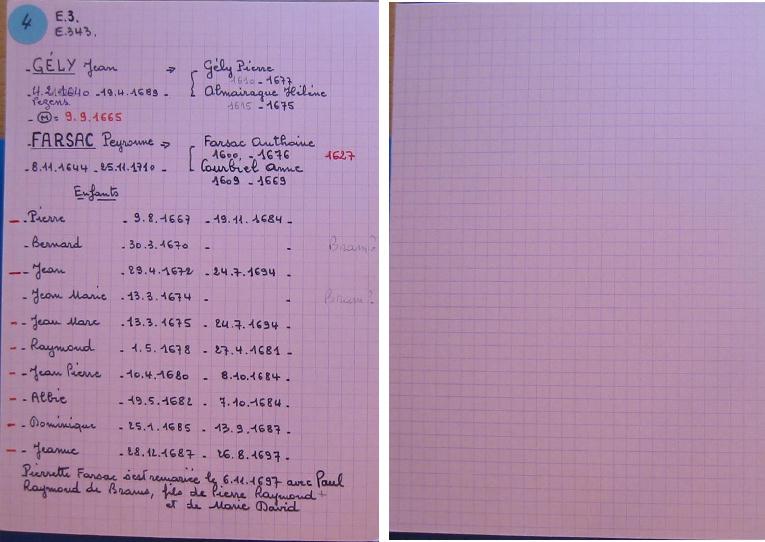 4
E.3.
E.343.
- GÉLY Jean ⇒ Gély Pierre
1610 - 1677
- 4.2.1640 - 19.4.1689 - Almairaque Hélène
Pezens 1615 - 1675
- (M) = 9.9.1665
- FARSAC Peyronne ⇒ Farsac Anthoine
1600, - 1676 1627
- 8.11.1644 - 25.11.1710 - Courbiel Anne
1609 - 1669
Enfants
- Pierre - 9.8.1667 - 19.11.1684 -
- Bernard - 30.3.1670 - - Bram?
- Jean - 29.4.1672 - 24.7.1694 -
- Jean Marie - 13.3.1674 - - Bram?
- Jean Marc - 13.3.1675 - 24.7.1694 -
- Raymond - 1.5.1678 - 27.4.1681 -
- Jean Pierre - 10.4.1680 - 8.10.1684 -
- Albie - 19.5.1682 - 7.10.1684 -
- Dominique - 25.1.1685 - 13.9.1687 -
- Jeanne - 28.12.1687 - 26.8.1697 -
Pierrette Farsac s'est remariée le 6.11.1697 avec Paul
Raymond de Brams, fils de Pierre Raymond +
et de Marie David